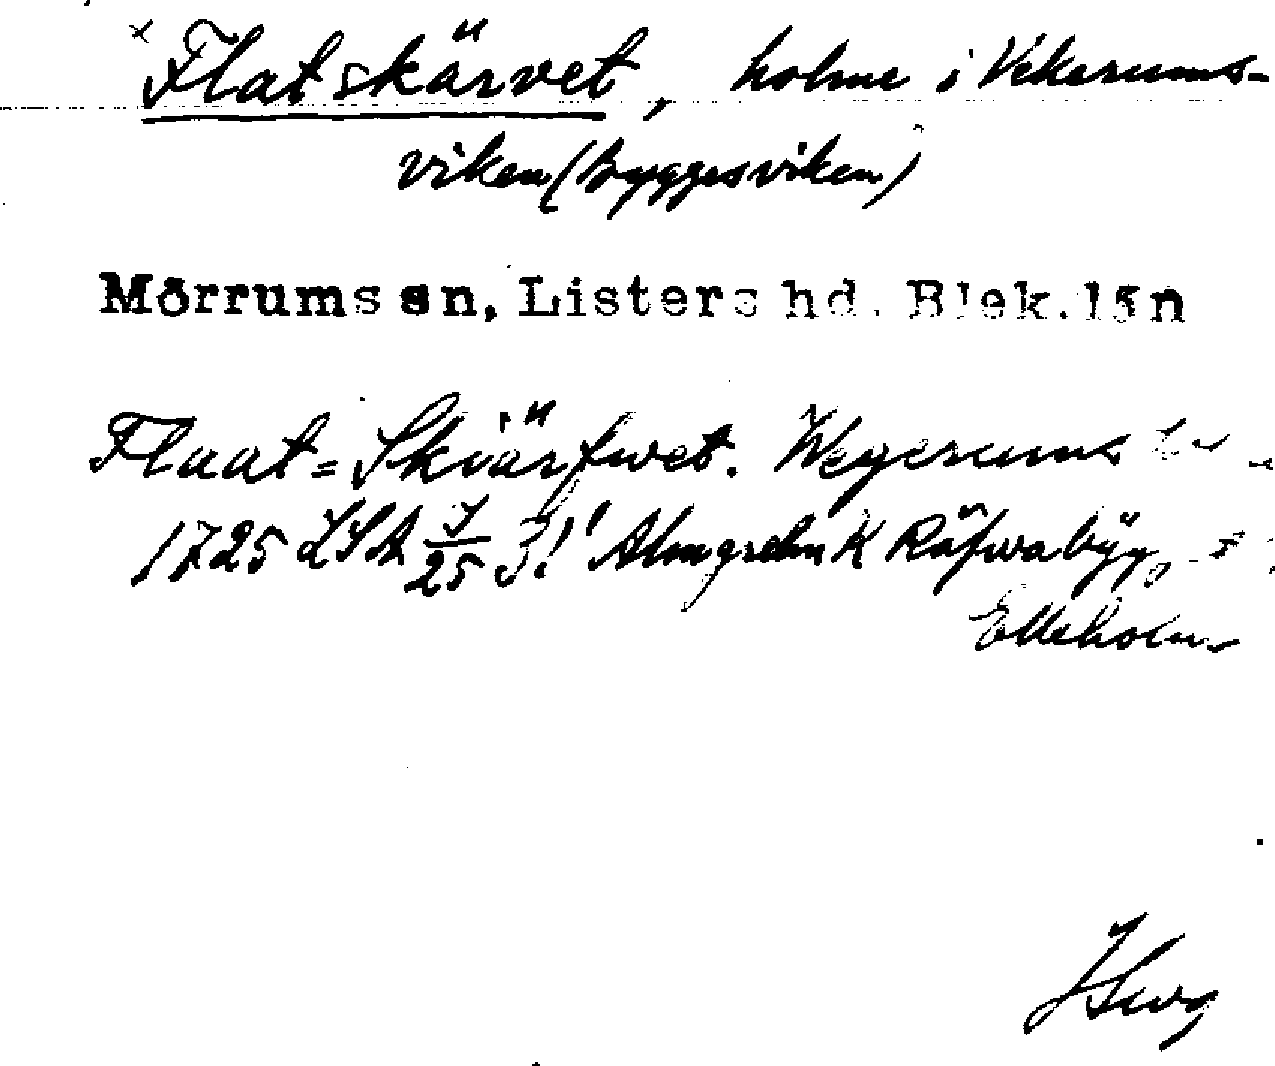 Flatskärvet, holme i Vekerums-
viken (Byggesviken)
Mörrums sn, Listers hd. Blek. län
Flaat=Skiärfwet. Wegerums
1725 LSA 3! Almgrehn K Röfwabÿg,
Elleholm